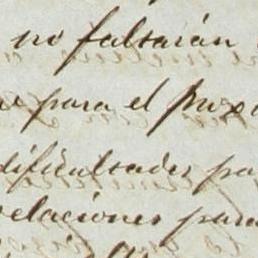 no faltarán
para el
dificultades pa
relaciones para